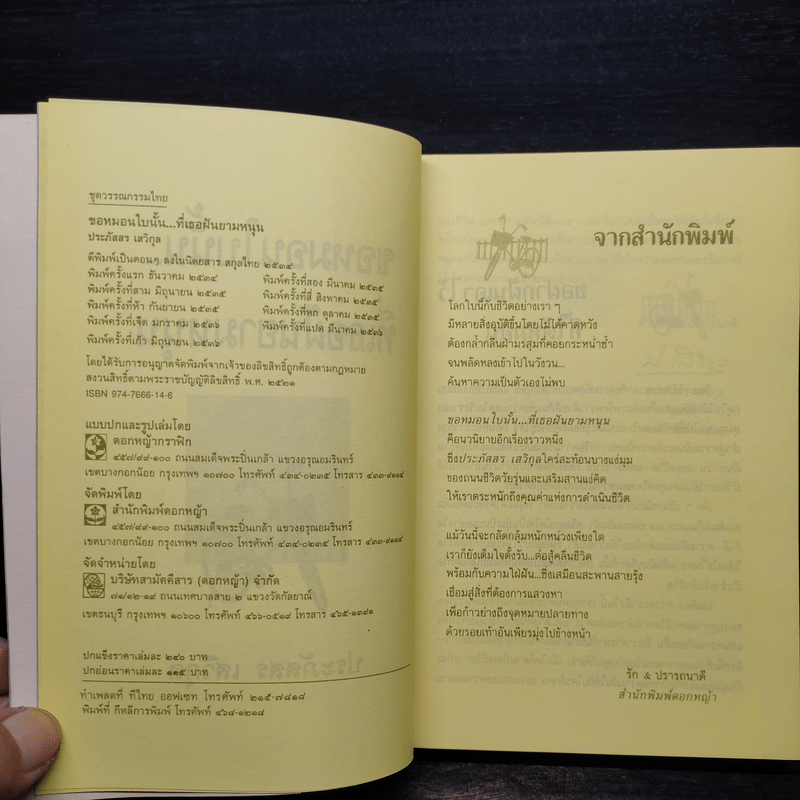 ชุดวรรณกรรมไทย
ขอหมอนใบนั้น...ที่เธอฝันยามหนุน
ประภัสสร เสวิกุล
ตีพิมพ์เป็นตอนๆ ลงในนิตยสาร สกุลไทย ๒๕๓๔
พิมพ์ครั้งแรก ธันวาคม ๒๕๓๔
พิมพ์ครั้งที่สอง มีนาคม ๒๕๓๕
พิมพ์ครั้งที่สาม มิถุนายน ๒๕๓๕
พิมพ์ครั้งที่สี่ สิงหาคม ๒๕๓๕
พิมพ์ครั้งที่ห้า กันยายน ๒๕๓๕
พิมพ์ครั้งที่หก ตุลาคม ๒๕๓๕
พิมพ์ครั้งที่เจ็ด มกราคม ๒๕๓๖
พิมพ์ครั้งที่แปด มีนาคม ๒๕๓๖
พิมพ์ครั้งที่เก้า มิถุนายน ๒๕๓๖
โดยได้รับการอนุญาตจัดพิมพ์จากเจ้าของลิขสิทธิ์ถูกต้องตามกฎหมาย
สงวนสิทธิ์ตามพระราชบัญญัติลิขสิทธิ์ พ.ศ. ๒๕๒๑
ISBN 974-7666-14-6
แบบปกและรูปเล่มโดย
ดอกหญ้ากราฟิก
๔๕๗/๙๙-๑๐๐ ถนนสมเด็จพระปิ่นเกล้า แขวงอรุณอมรินทร์
เขตบางกอกน้อย กรุงเทพฯ ๑๐๗๐๐ โทรศัพท์ ๔๓๔-๐๒๓๕ โทรสาร ๔๓๓-๙๑๑๔
จัดพิมพ์โดย
สำนักพิมพ์ดอกหญ้า
๔๕๗/๙๙-๑๐๐ ถนนสมเด็จพระปิ่นเกล้า แขวงอรุณอมรินทร์
เขตบางกอกน้อย กรุงเทพฯ ๑๐๗๐๐ โทรศัพท์ ๔๓๔-๐๒๓๕ โทรสาร ๔๓๓-๙๑๑๔
จัดจำหน่ายโดย
บริษัทสามัคคีสาร (ดอกหญ้า) จำกัด
๗๑/๑๒-๑๙ ถนนเทศบาลสาย ๒ แขวงวัดกัลยาณ์
เขตธนบุรี กรุงเทพฯ ๑๐๖๐๐ โทรศัพท์ ๔๖๖-๐๕๑๙ โทรสาร ๔๖๕-๑๓๙๑
ปกแข็งราคาเล่มละ ๒๔๐ บาท
ปกอ่อนราคาเล่มละ ๑๑๕ บาท
ทำเพลตที่ ทีไทย ออฟเซท โทรศัพท์ ๒๑๕-๗๘๑๘
พิมพ์ที่ กีหลีการพิมพ์ โทรศัพท์ ๔๖๘-๑๒๑๘
จากสำนักพิมพ์
โลกใบนี้กับชีวิตอย่างเรา ๆ
มีหลายสิ่งอุบัติขึ้นโดยไม่ได้คาดหวัง
ต้องกล้ำกลืนฝ่ามรสุมที่คอยกระหน่ำซ้ำ
จนพลัดหลงเข้าไปในวังวน...
ค้นหาความเป็นตัวเองไม่พบ
ขอหมอนใบนั้น...ที่เธอฝันยามหนุน
คือนวนิยายอีกเรื่องราวหนึ่ง
ซึ่งประภัสสร เสวิกุลใคร่สะท้อนบางแง่มุม
ของถนนชีวิตวัยรุ่นและเสริมสานแง่คิด
ให้เราตระหนักถึงคุณค่าแห่งการดำเนินชีวิต
แม้วันนี้จะกลัดกลุ้มหนักหน่วงเพียงใด
เราก็ยังเต็มใจตั้งรับ...ต่อสู้คลื่นชีวิต
พร้อมกับความใฝ่ฝัน...ซึ่งเสมือนสะพานสายรุ้ง
เชื่อมสู่สิ่งที่ต้องการแสวงหา
เพื่อก้าวย่างถึงจุดหมายปลายทาง
ด้วยรอยเท้าอันเพียรมุ่งไปข้างหน้า
รัก & ปรารถนาดี
สำนักพิมพ์ดอกหญ้า